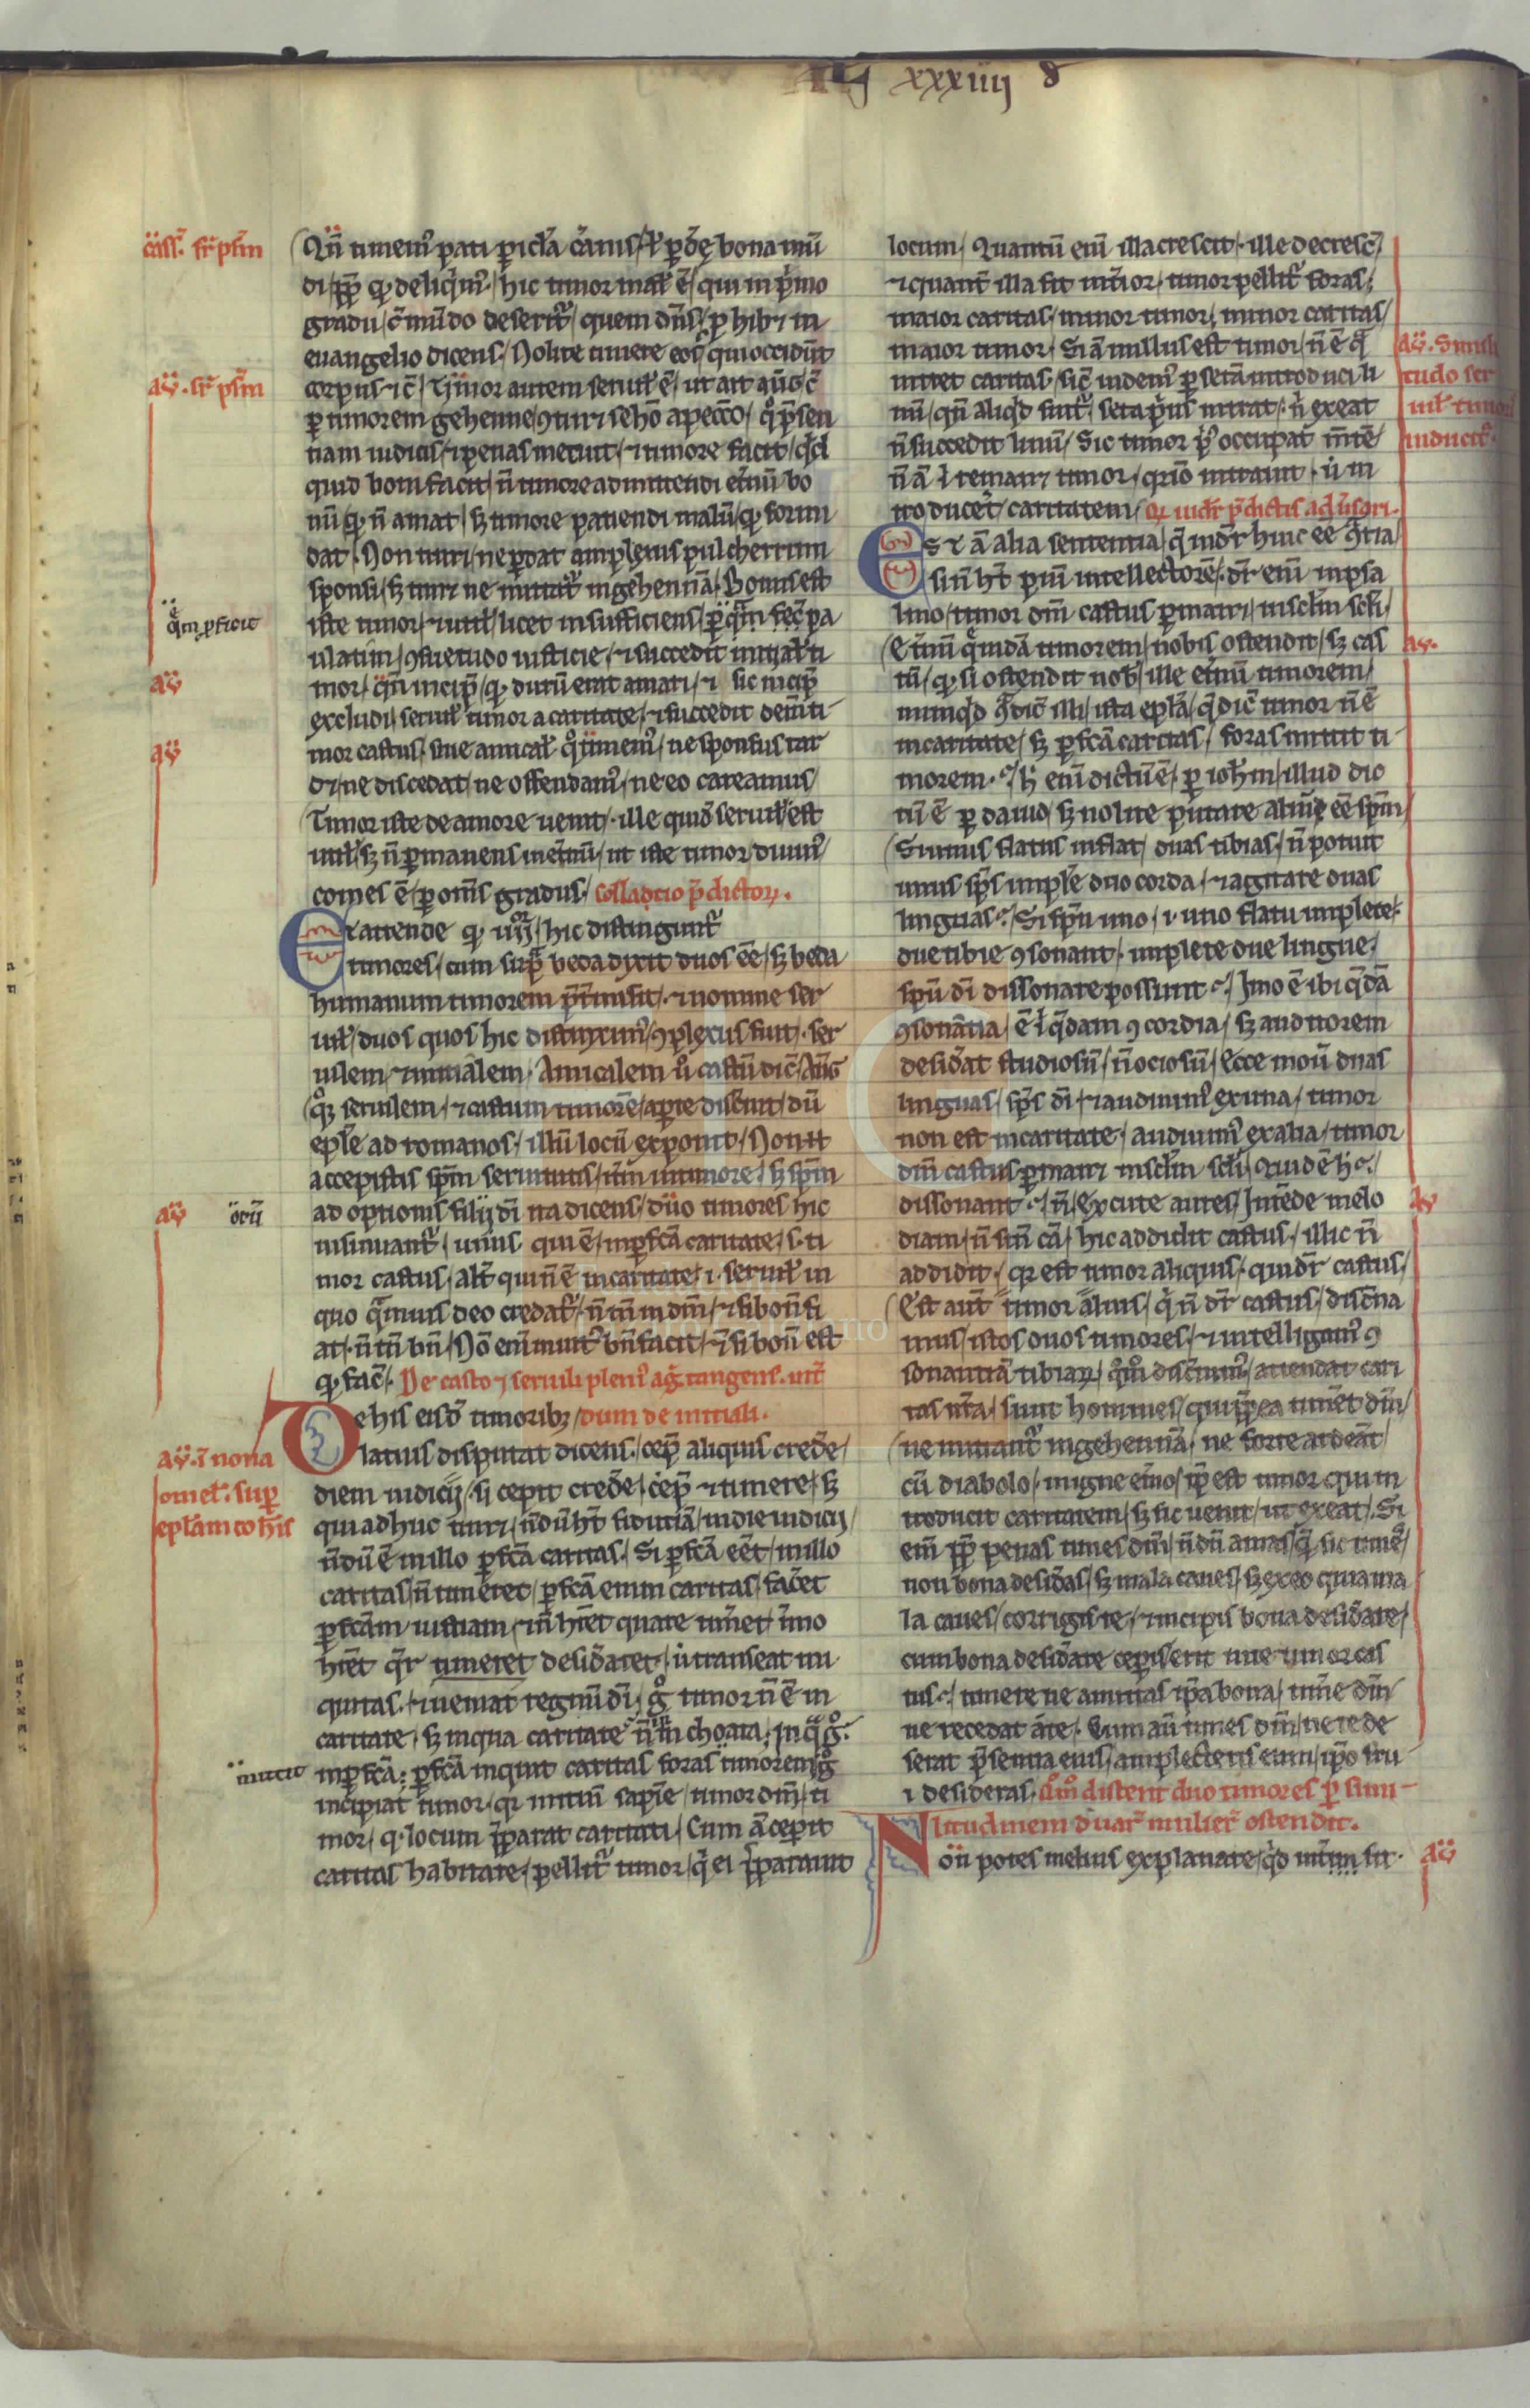 xxxiiij d
Qn̄ timem᷒ pati pericl̄a carnis ł perdē bona mū
di ꝓp̄ qḋ deliq̄im᷒ hic timor mal᷒ ē qui in p̄mo
gradu c̄ mūdo deserit᷒ quem dn̄s ꝓhib& in
euangelio dicens Nolite timere eos qui occidūt
corpus ⁊c̄ Timor autem seruil̄ ē ut ait aug᷒ c̄
ꝑ timorem gehenne ꝯtin& se hō a pecc̄o qͦ p̄sen
tiam iudicis ⁊ penas metuit ⁊ timore facit q̄cḋ
quid boni facit n̄ timore admittendi et̄nū bo
nū qḋ n̄ amat sꝫ timore patiendi malū qḋ formi
dat Non tim& ne ꝑdat amplexus pulcherrimi
sponsi sꝫ tim& ne mittat᷒ in gehennā Bonus est
iste timor ⁊ utił licet insufficiens ꝑ quem fit pa
ulatim ꝯsuetudo iusticie ⁊ succedit initial̄ ti
mor qn̄ incip̄ qḋ durū erat amari ⁊ sic incip̄
excludi seruił timor a caritate ⁊ succedit dein̄ ti
mor castus siue amical̄ qͦ timem᷒ ne sponsus tar
d& ne discedat ne offendam᷒ ne eo careamus
Timor iste de amore uenit ille quiḋ seruił est
utił sꝫ n̄ ꝑmanens in et̄nū ut iste timor diuin᷒
comes ē ꝑ om̄s gradus Collactio p̄dictoꝝ
Et attende qḋ iiijͦʳ hic distingunt᷒
timores cum sup̄ beda dixit duos ēe sꝫ beda
humanum timorem p̄t̄misit ⁊ nomine ser
uił duos quos hic distinxim᷒ ꝯplexus fuit ser
uilem ⁊ initialem Amicalem u᷒o castū dic̄ Aug᷒
qͦqꝫ seruilem ⁊ castum timorē aperte discernit dū
epl̄e ad romanos illū locū exponit Non
accepistis sp̄m seruitutis iterū in timore sꝫ sp̄m
adoptionis filij di ita dicens duo timores hic
insinuant᷒ unus qui ē in ꝑfc̄a caritate s ti
mor castus alt̄ qui n̄ ē in caritate i seruił in
quo q̄muis deo credat᷒ n̄ tn̄ in dm̄ ⁊ si bonū fi
at n̄ tn̄ bn̄ Nō eni inuit᷒ bn̄ facit ⁊ si bonū est
qḋ fac̄ De casto ⁊ seruili pleni᷒ ag̓ tangens uit̄
De his eisḋ timoribꝫ dum de initiali
latius disputat dicens cep̄ aliquis credē
diem iudicij si cepit credē cep̄ ⁊ timere sꝫ
qui adhuc tim& n̄dū ht̄ fiduciā in die iudicij
n̄dū ē in illo ꝑfc̄a caritas Si ꝑfc̄a eēt in illo
caritas n̄ timeret ꝑfc̄a enim caritas fac̄et
ꝑfc̄am iustitiam ⁊ n̄ hēt quare tim̄et imo
hēt q̄r timeret desid̄aret ut transeat ini
quitas ⁊ ueniat regnū di g̊ timor n̄ ē in
caritate sꝫ in qua caritate n̄ inchoata In qͣ g̊
in ꝑfc̄a ꝑfc̄a inquit caritas foras timorem g̊
incipiat timor qr initiū sapīe timor dm̄ ti
mor q locum p̄parat caritati Cum ā ceperit
caritas habitare pellit᷒ timor q̄ ei p̄parauit
locum Quantū eni illa crescit ille decresc̄
⁊ quant̄ illa fit int̄ior timor pellit᷒ foras
maior caritas minor timor minor caritas
maior timor Si ā nullus est timor n̄ ē q̄
intret caritas sic̄ uidem᷒ ꝑ setā introduci li
nū qn̄ aliqḋ suit᷒ seta p̄us intrat n̄ exeat
n̄ succedit linū Sic timor p̄᷒ occupat m̄tē
n̄ ā i reman& timor qr iō intrauit ut in
troduceret caritatem Qḋ uidet᷒ p̄dictis aduersari
Est ā alia sententia q̄ uidet᷒ huic ēe ꝯtria
si n̄ ht̄ piū intellectorē dr̄ eni in psa
lmo timor dm̄ castus ꝑman& in sclm̄ scl̄i
Et̄nū quēdā timorem nobis ostendit sꝫ cas
tū qḋ si ostendit nob̄ ille et̄nū timorem
nunqḋ ꝯdic̄ illi ista epl̄a q̄ dic̄ timor n̄ ē
in caritate sꝫ ꝑfc̄a caritas foras mittit ti
morem hͦ eni dictū ē ꝑ ioh̄m illud dic
tū ē ꝑ dauid sꝫ nolite putare aliuḋ ēe sp̄m
Si unus flatus inflat duas tibias n̄ potuit
unus sp̄s implē duo corda ⁊ agitare duas
linguas Si sp̄u uno i uno flatu implete
due tibie ꝯsonant implete due lingue
sp̄u di dissonare possunt Imo ē ibi q̄dā
ꝯsonātia ē i q̄dam ꝯcordia sꝫ auditorem
desid̄at studiosū n̄ ociosū Ecce mouit duas
linguas sp̄s di ⁊ audiuim᷒ ex una timor
non est in caritate audiuim᷒ ex alia timor
dm̄ castus ꝑman& in sclm̄ scl̄i Quid ē hͦ
dissonant n̄ Excute aures Intēde melo
diam n̄ sin̄ cā hic addidit castus illic n̄
addidit qr est timor aliquis qui dr̄ castus
Est aut̄ timor alius q̄ n̄ dr̄ castus discerna
mus istos duos timores ⁊ intelligam᷒ ꝯ
sonantiā tibiaꝝ qͦmͦ discernim᷒ attendat cari
tas ur̄a sunt homines qui ꝓpt̄ea tim̄et dm̄
ne mittant᷒ in gehennā ne forte ardeāt
cū diabolo in igne et̄no ip̄e est timor qui in
troducit caritatem sꝫ sic uenit ut exeat Si
eni ꝓp̄ penas times dm̄ n̄dū amas q̄ sic times
non bona desid̄as sꝫ mala caues sꝫ ex eo quia ma
la caues corrigis te ⁊ incipis bona desid̄are
cum bona desid̄are ceperis erit in te timor cas
tus timere ne amittas ip̄a bona tim̄e dm̄
ne recedat a te Cum aū times dm̄ ne te de
serat p̄sentia eius amplecteris eum ip̄o fru
i desideras Qͦmͦ distent duo timores ꝑ simi
litudinem duar᷒ mulier᷒ ostendit
Non potes melius explanare qḋ intersit
cass᷒ sr̄ ps̄m
aug᷒ sr̄ ps̄m
quem ꝓficit
aug᷒
aug᷒
aug᷒
aug᷒ ī nona
omel᷒ sup
epl̄am ioh̄is
mittit
aug᷒ Simili
tudo ser
uił timor
inducit᷒
aug᷒
aug᷒
aug᷒